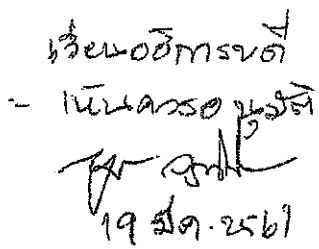 เรียนอธิการบดี
- เห็นควรอนุมัติ
19 มี.ค. 2561